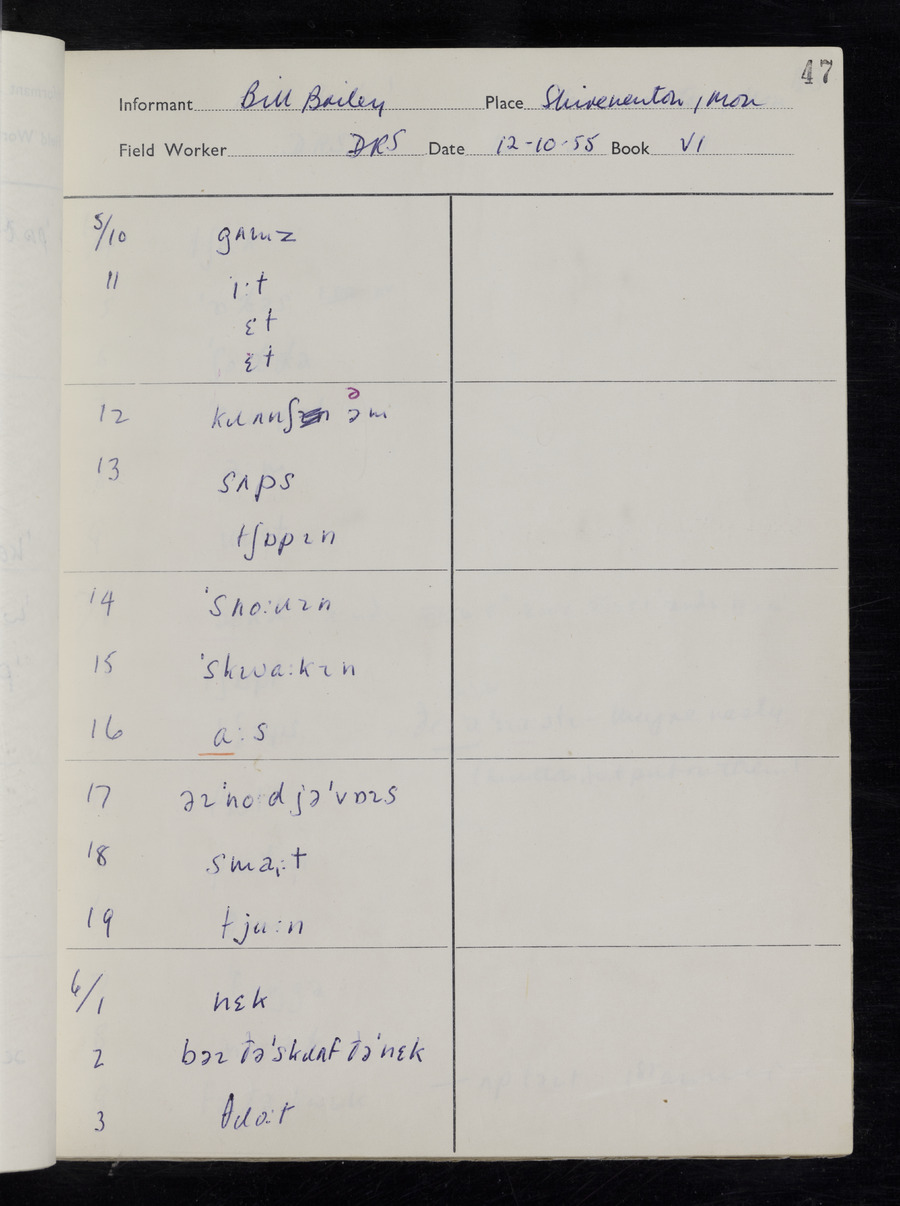 47
Informant Bill Bailey Place Shirenewton, Mon
Field Worker DRS Date 12-10-55 Book VI
5/10 gʌmz
11 i:t
ɛt
ɛ̨t
ə
12 kɹʌnʃ əm
13 sʌps
tʃɒpɪn
14 ˈsno:ɹɪn
15 ˈskwa:kɪn
16 a:s
17 əɪˈno:djəˈvɒɪs
18 sma:t
19 tju:n
6/1 nɛk
2 bəɪ ðəˈskɹʌf ðəˈnɛk
3 θɹo:t